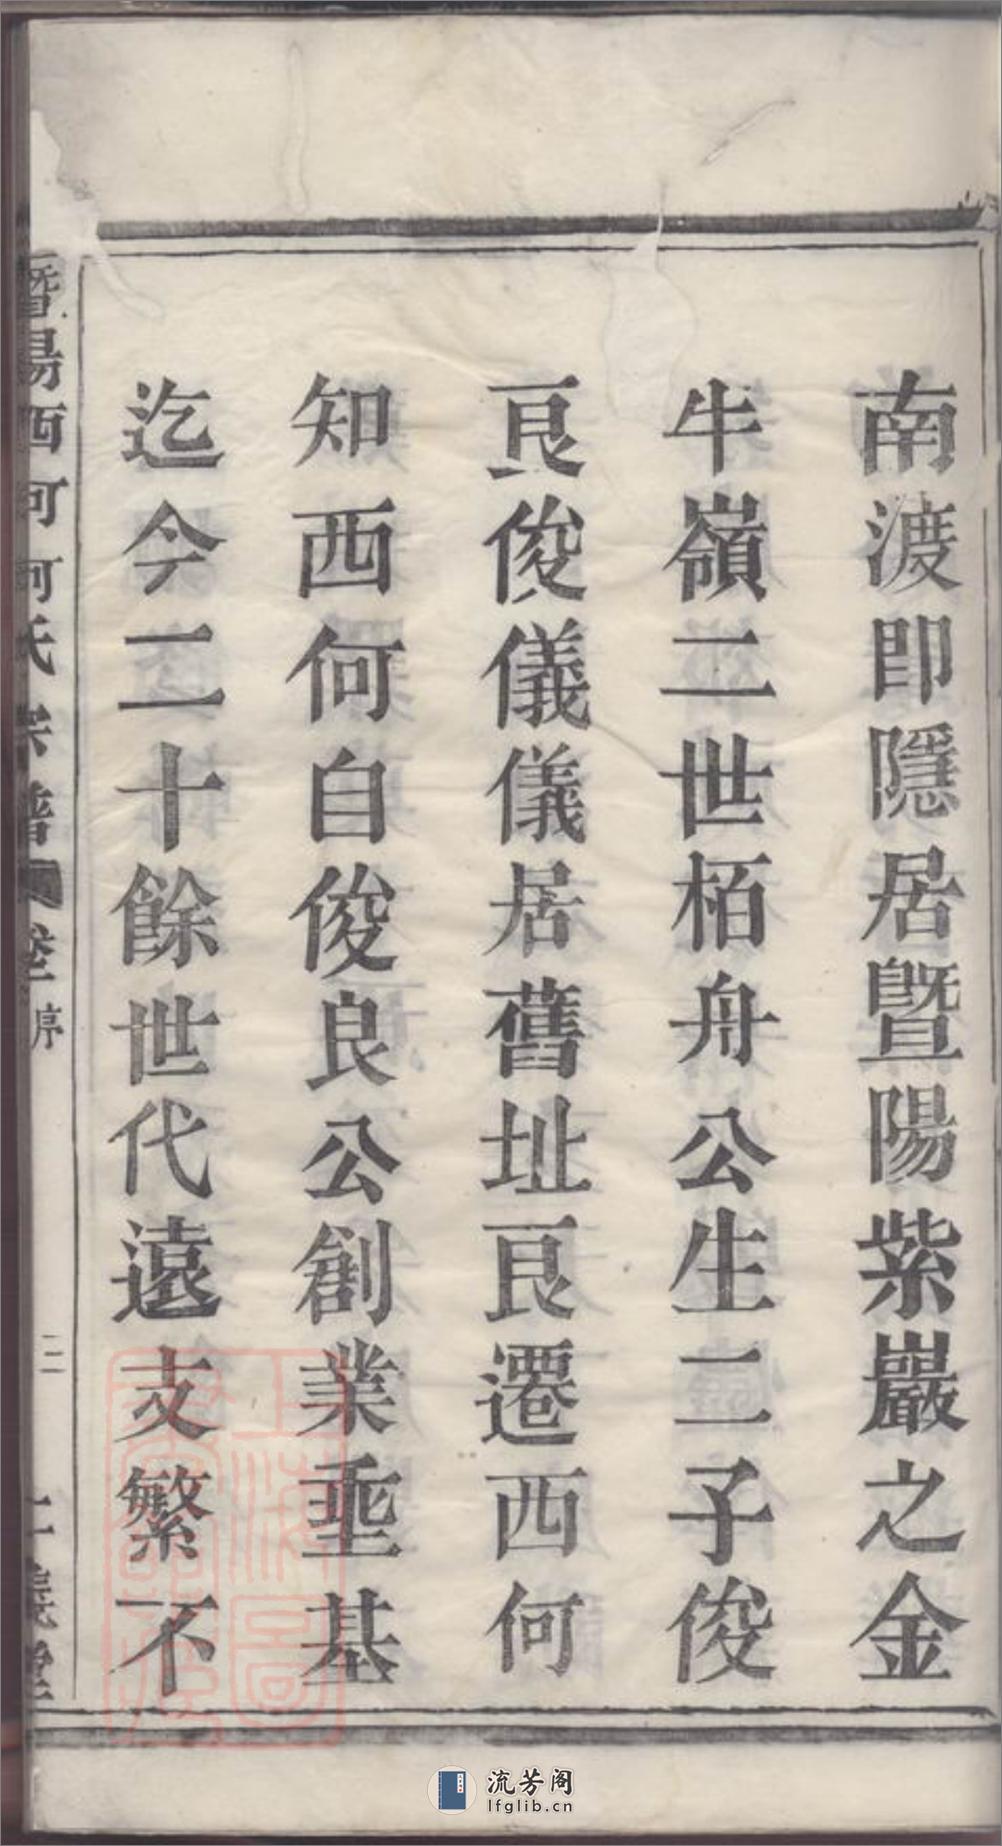 南渡即隱居暨陽紫巖之金
牛嶺二世栢舟公生二子俊
良俊儀儀居舊址良遷西何
知西何自俊良公創業垂基
迄今二十餘世代遠支繁不
暨陽西河何氏宗譜 卷一 序 三
流芳阁
lfglib.cn